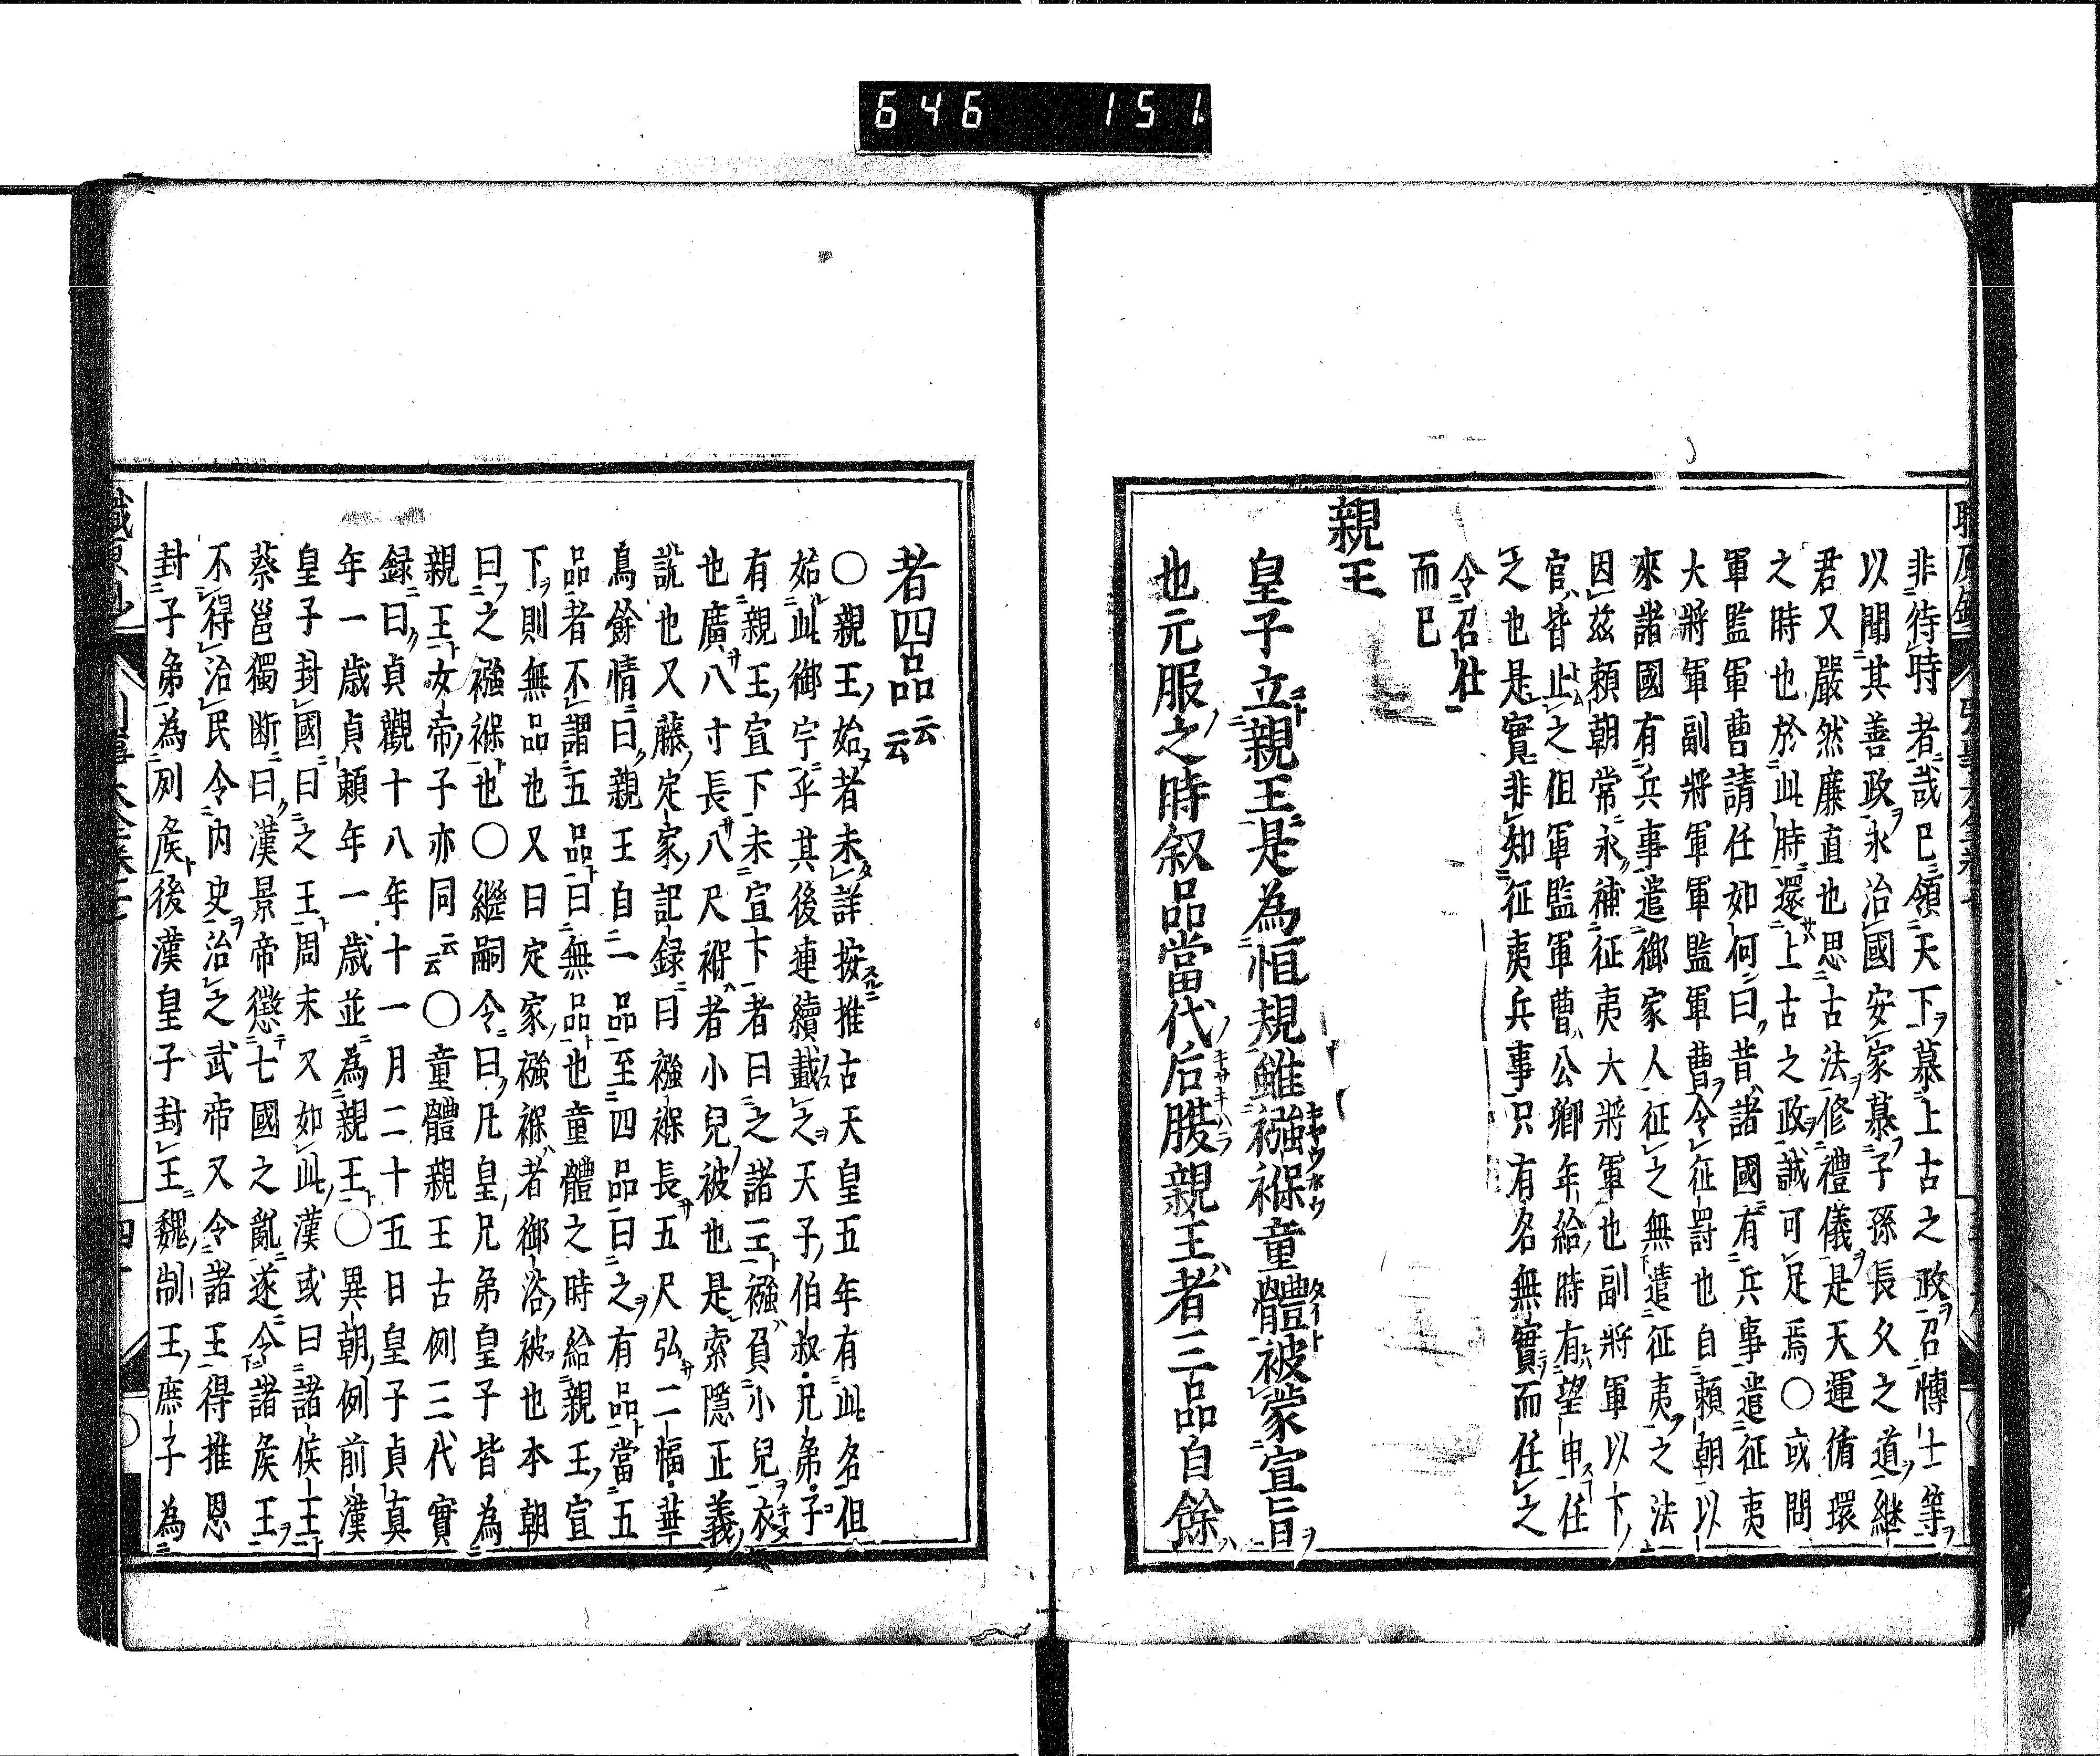 646 151
非待時者哉已領天下慕上古之政召博士等
以聞其善政永治國安家慕子孫長久之道継
君又嚴然廉直也思古法修禮儀是天運循環
之時也於此時還上古之政誠可足焉〇或問
軍監軍曹請任如何曰昔諸國有兵事遣征夷
大將軍副將軍軍監軍曹令征罸也自頼朝以
來諸國有兵事遣御家人征之無遣征夷之法
因茲頼朝常永補征夷大將軍也副將軍以下
官皆止之但軍監軍曹公卿年給時有望申任
之也是實非知征夷兵事只有名無實而任之
令召仕
而已
親王
皇子立親王是為恒規雖襁褓童體被蒙宣旨
也元服之時叙品當代后腹親王者三品自餘
者四品云云
〇親王始者未詳按推古天皇五年有此名但
始此御宇乎其後連續載之天子伯叔兄弟子
有親王宣下未宣下者曰之諸王襁負小兒衣
也廣八寸長八尺褓者小兒被也是索隱正義
説也又藤定家記録曰襁褓長五尺弘二幅華
鳥餘情曰親王自一品至四品曰之有品當五
品者不謂五品曰無品也童體之時給親王宣
下則無品也又曰定家襁褓者御浴被也本朝
曰之襁褓也〇繼嗣令曰凡皇兄弟皇子皆為
親王女帝子亦同云云〇童體親王古例三代實
録曰貞觀十八年十一月二十五日皇子貞真
年一歳貞頼年一歳並為親王〇異朝例前漢
皇子封國曰之王周末又如此漢或曰諸侯王
蔡邕獨断曰漢景帝懲七國之亂遂令諸矦王
不得治民令内史治之武帝又令諸王得推恩
封子弟為列矦後漢皇子封王魏制王庶子為